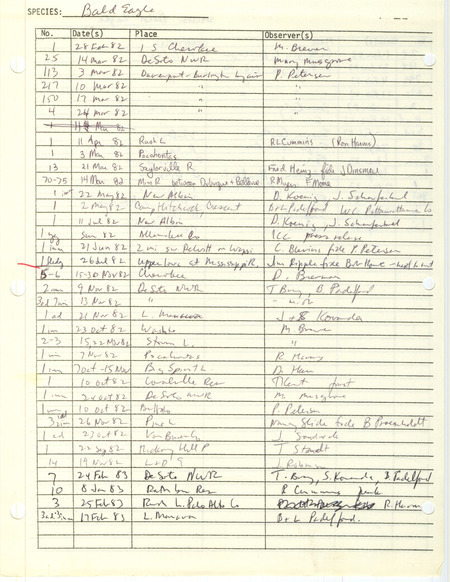 SPECIES: Bald Eagle
No. Date(s) Place Observer(s)
1 28 Feb 82 1 S Cherokee M. Brewer
25 14 Mar 82 DeSoto NWR Mary Musgrove
113 3 Mar 82 Davenport - Burlington P. Petersen
217 10 Mar 82 " "
150 17 Mar 82 " "
4 24 Mar 82 " "
11 Mar 82
1 11 Apr 82 Rush L RL Cummins (Ron Harms)
1 3 Mar 82 Pocahontas
13 21 Mar 82 Saylorville R Fred Heinz fide J Dinsmore
70-75 14 Mar 82 Miss R between Dubuque + Bellevue R Myers F Moore
1 22 May 82 New Albin D. Koenig, J. Schaufenbuel
1 2 May 82 Camp Hitchcock, Crescent B+L Padelford W C Pottawattamie Co
1 11 Jul 82 New Albin D. Koenig, J. Schaufenbuel
1 Sum 82 Allamakee Co ICC press release
1 21 Jun 82 2 mi sw on Wapsi C. Bevins fide P. Petersen
26 Jul 82 Upper Iowa at Mississippi R. Jim Ripple fide
5-6 15-30 Nov 82 Cherokee D. Brewer
2 imm 9 Nov 82 DeSoto NWR T Bray B Padelford
3ad 7im 13 Nov 82 "
1 ad 21 Nov 82 L. Manawa J+B Kovanda
1 im 23 Oct 82 M. Brewer
2-3 15, 22 Nov 82 Storm L.
1 im 7 Nov 82 Pocahontas R Harms
1 im 7 Oct - 15 Nov Big Spirit L D. Harr
1 10 Oct 82 Coralville Res T Kent
1 im 24 Oct 82 DeSoto NWR M. Musgrove
1 im 10 Oct 82 Buffalo P. Petersen
26 Nov 82 Pine L Nancy Slife fide B Proescholdt
1 ad 27 Oct 82 Van Buren Co J. Sandrock
1 22 Sep 82 Pickerel Hill P T Staudt
14 19 Nov 82 L+D
7 24 Feb 83 DeSoto NWR T. Bray, S. Kovanda, B Padelford
10 8 Jan 83 Rathbun Res R Cummins
3 25 Feb 83 Rush L. Palo Alto Co R. Harms
3ad 3im 17 Feb 83 L. Manawa B+L Padelford.